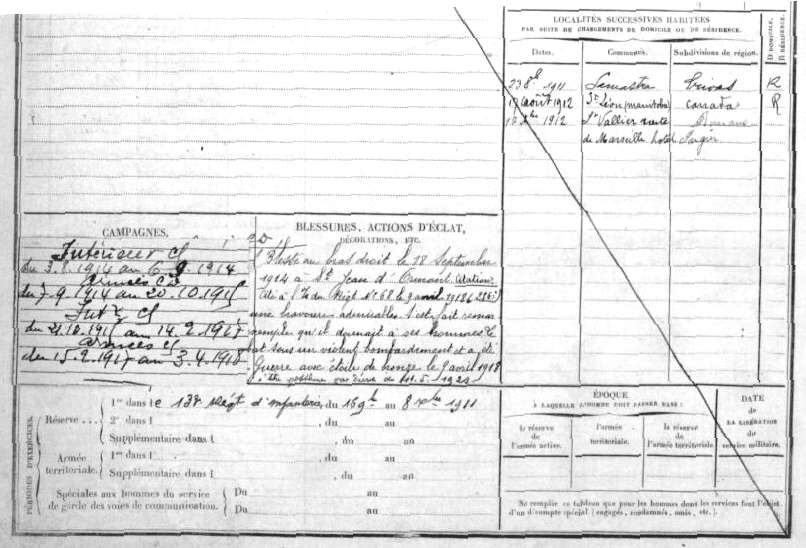 LOCALITÉS SUCCESSIVES HABITÉES
PAR SUITE DE CHANGEMENTS DE DOMICILE OU DE RÉSIDENCE.
D DOMICILE.
R RÉSIDENCE.
Dates.
Communes.
Subdivisions de région.
1911
Lamastre
Privas
R
17 août 1912
St Léon (Manitoba)
Canada
R
1912
St Vallier route
de Marseille hotel
CAMPAGNES.
Intérieur CS
du 3.8.1914 au 6.9.1914
Armées
du 7.9.1914 au 20.10.191
Int
du 21.10.191 au 14.2.1917
Armées
du 15.2.1917 au 3.4.1918
BLESSURES, ACTIONS D'ÉCLAT,
DÉCORATIONS, ETC.
Blessé au bras droit le 28 Septembre
1914 à St Jean d' Citation:
Cité à l'o du Régt N° 68 le 9 avril 1918
une bravoure admirable s'est fait remar
exemple qu'il donnait à ses hommes le
bat sous un violent bombardement et a été
Guerre avec étoile de bronze le 9 avril 1918
PÉRIODES D'EXERCICES.
Réserve ...
1re dans le 138e Régt d'infanterie, du 16 9bre au 8 Xbre 1911
2e dans l , du au
Supplémentaire dans l , du au
Armée
territoriale.
1re dans l , du au
Supplémentaire dans l , du au
Spéciales aux hommes du service
de garde des voies de communication.
Du au
Du au
ÉPOQUE
À LAQUELLE L'HOMME DOIT PASSER DANS :
la réserve
de
l'armée active.
l'armée
territoriale.
la réserve
de
l'armée territoriale.
DATE
de
LA LIBÉRATION
du
service militaire.
Ne remplir ce tableau que pour les hommes dont les services font l'objet
d'un décompte spécial (engagés, condamnés, omis, etc.).